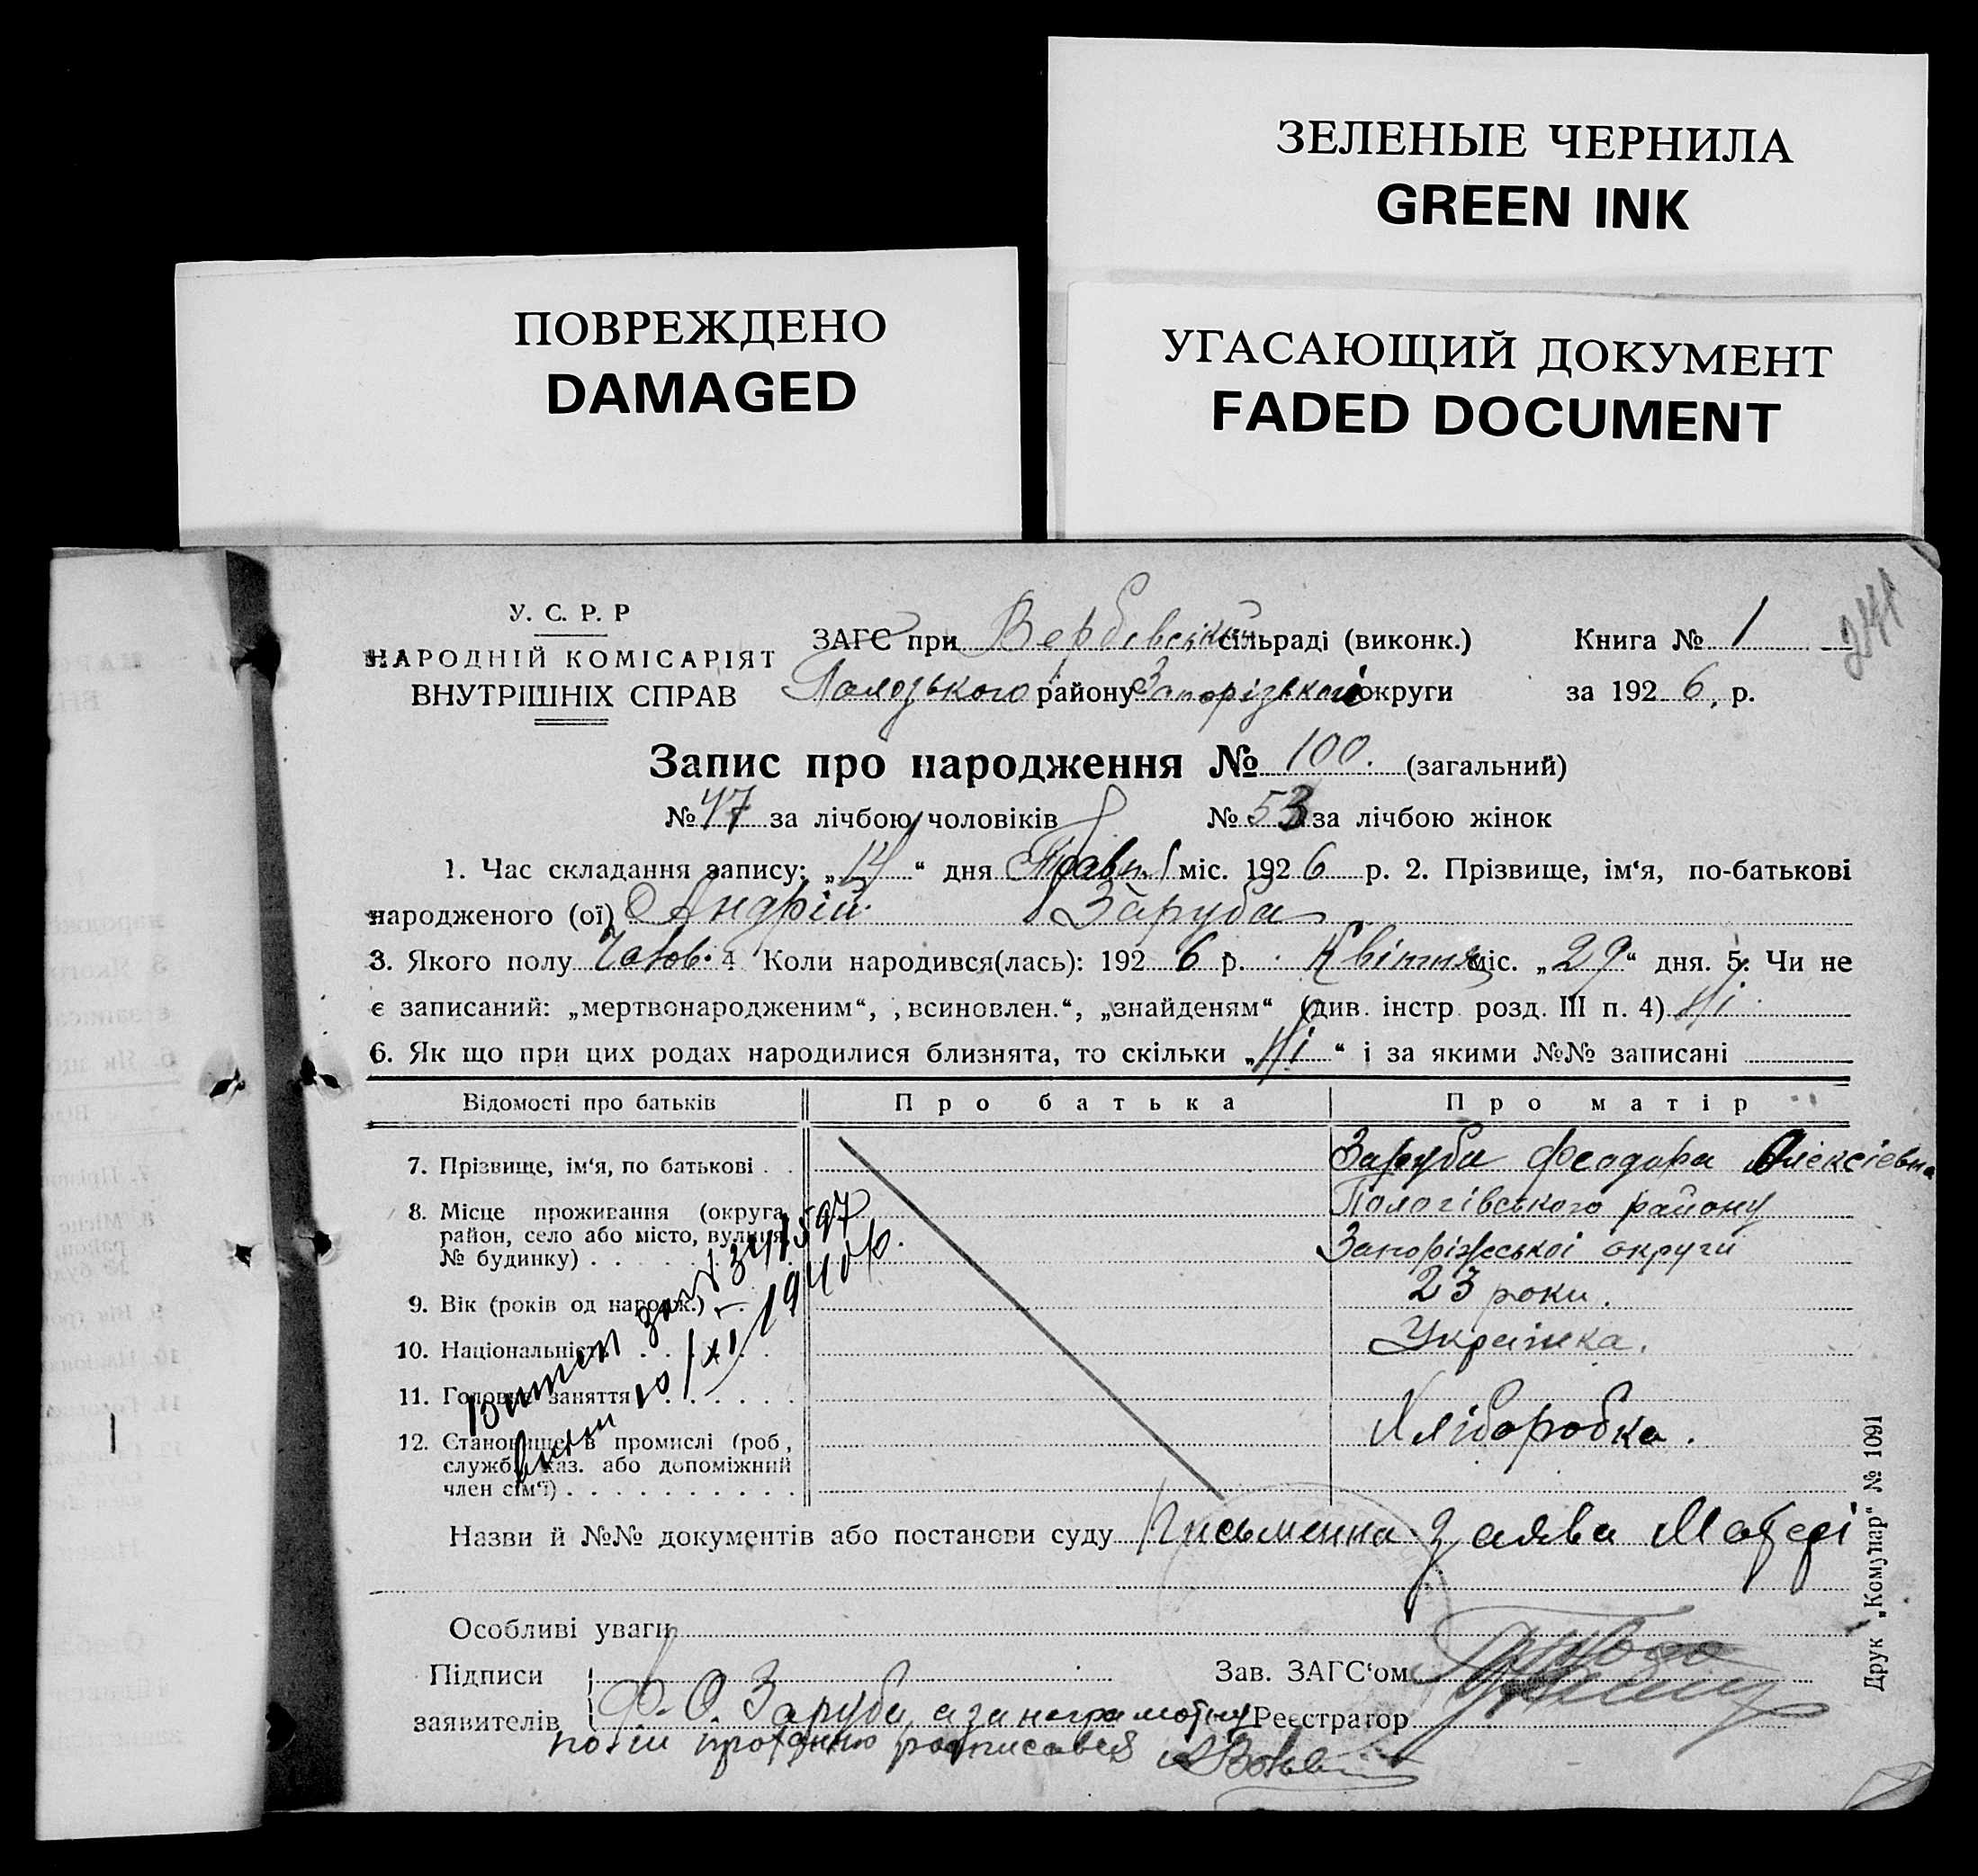 ЗЕЛЕНЫЕ ЧЕРНИЛА
GREEN INK
ПОВРЕЖДЕНО
DAMAGED
УГАСАЮЩИЙ ДОКУМЕНТ
FADED DOCUMENT
У. С. Р. Р
НАРОДНІЙ КОМІСАРІЯТ
ВНУТРІШНІХ СПРАВ
ЗАГС при Вербовський сільраді (виконк.)
Пологського району Запорізької округи
Книга № 1
241
за 1926, р.
Запис про народження № 100. (загальний)
№ 47 за лічбою чоловіків № 53 за лічбою жінок
1. Час складання запису: „14“ дня Травн. міс. 1926 р. 2. Прізвище, ім‘я, по-батькові
народженого (ої) Андрій Заруба
3. Якого полу Чолов. 4 Коли народився(лась): 1926 р. Квітня міс. „29“ дня. 5. Чи не
є записаний: „мертвонародженим“, „всиновлен.“, „знайденям“ (див. інстр розд. III п. 4) Ні
6. Як що при цих родах народилися близнята, то скільки „Ні“ і за якими №№ записані
Відомості про батьків Про батька Про матір
7. Прізвище, ім‘я, по батькові . . Заруба Феодора Олексіевна
8. Місце проживання (округа, район, село або місто, вулиця, № будинку) Пологівського району
Запоріжської округи
9. Вік (років од народж.) 23 роки.
10. Національність Украінка.
11. Головне заняття Хліборобка.
12. Становище в промислі (роб,
службов., хаз. або допоміжний
член сім‘ї)
10/XI 1940 р.
Назви й №№ документів або постанови суду Письменна заява Матері
Особливі уваги
Підписи
заявителів Ф. О. Заруба, а за неграмотну
по їй проханню росписався
Зав. ЗАГС‘ом
Реєстратор
Друк „Комунар“ № 1091